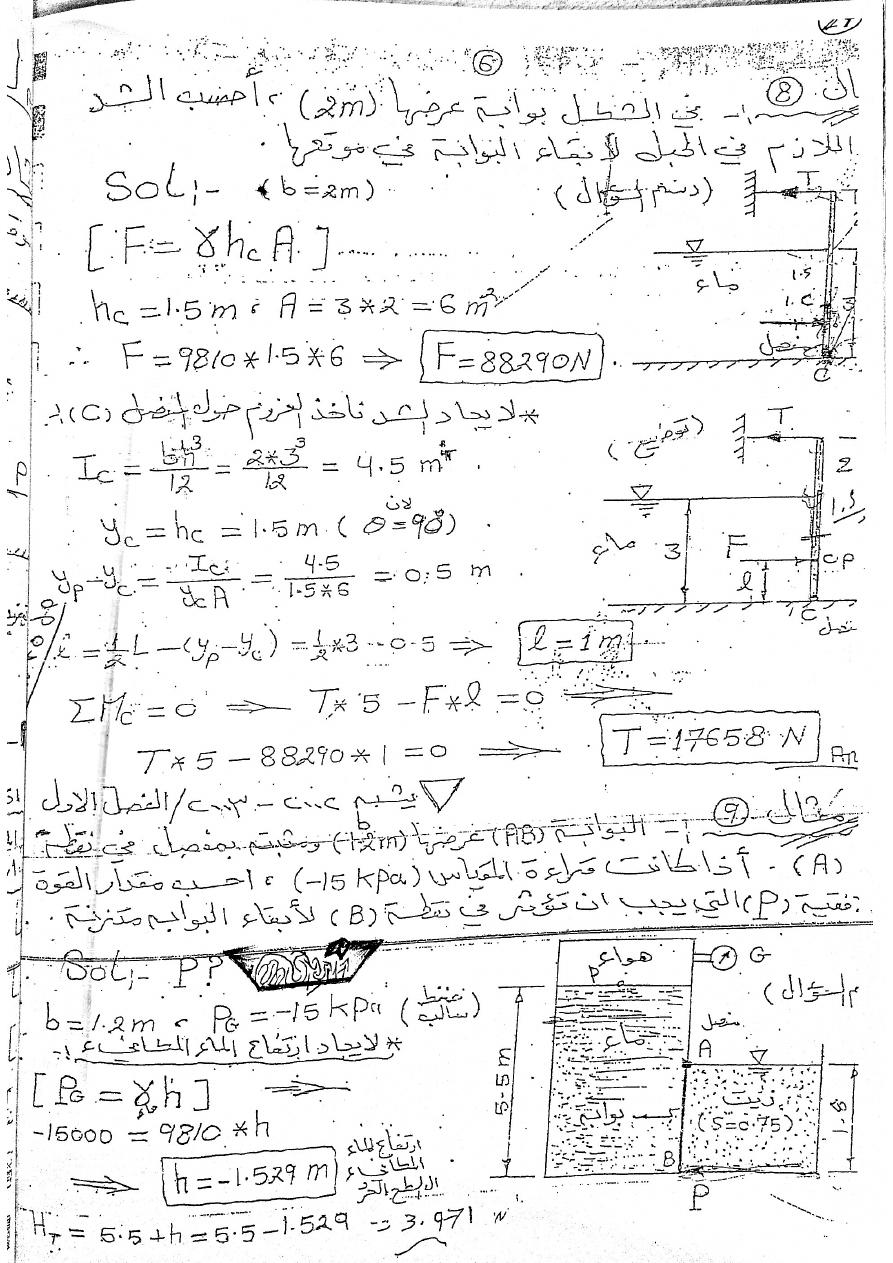 6
ال 8 - في الشكل بوابة عرضها (2m) ، أحسب الشد
اللازم في الحبل لابقاء البوابة في موقعها .
Sol:- (b=2m) (رسم السؤال)
T
[F = γ hc A] ..... .......
ماء
1.5
hc = 1.5 m ، A = 3*2 = 6 m²
∴ F = 9810*1.5*6 ⇒ F = 88290N .
مفصل
C
* لايجاد الشد ناخذ العزوم حول المفصل (C) :-
(توضيح)
T
2
Ic = bh³/12 = 2*3³/12 = 4.5 m⁴ .
yc = hc = 1.5 m ( لان θ = 90° ) .
ماء
3
F
1.5
CP
l
yp - yc = Ic/ycA = 4.5/1.5*6 = 0.5 m .
C
مفصل
l = 1/2 L - (yp - yc) = 1/2*3 - 0.5 ⇒ l = 1m
ΣMc = 0 ⇒ T*5 - F*l = 0
T*5 - 88290*1 = 0 ⇒ T = 17658 N
An
يشبه ٢٠٠٢ - ٢٠٠٣ / الفصل الاول
مثال 9 - البوابة (AB) عرضها (1.2m) ومثبتة بمفصل في نقطة
(A) . أذا كانت قراءة المقياس (-15 kPa) ، احسب مقدار القوة
فقية (P) التي يجب ان تؤثر في نقطة (B) لأبقاء البوابة متزنة .
Sol:- P?
هواء
G
b = 1.2m ، PG = -15 kPa (ضغط سالب)
م السؤال)
مفصل
* لايجاد ارتفاع الماء المكافىء :-
ماء
A
[PG = γماء h]
5.5m
بوابة
زيت
(S=0.75)
1.8
-15000 = 9810 * h
⇒ h = -1.529 m
ارتفاع الماء
المكافىء
B
P
HT = 5.5 + h = 5.5 - 1.529 = 3.971 m